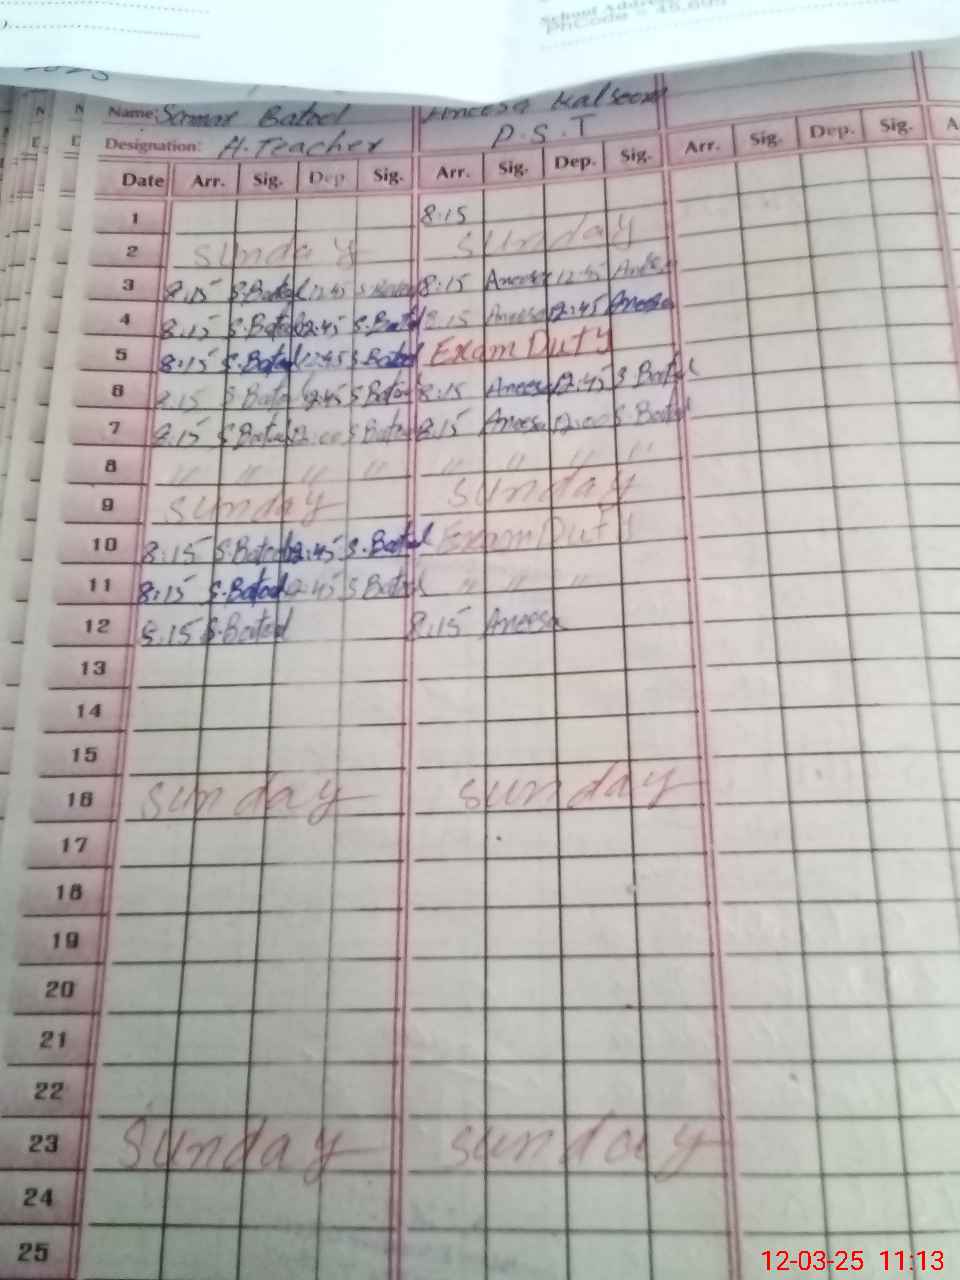 School Addre
PhCode = 
Name: Batool Aneesa Kalsoom
Designation: H.Teacher P.S.T
Date Arr. Sig. Dep. Sig. Arr. Sig. Dep. Sig. Arr. Sig. Dep. Sig. A
1 8:15
2 Sunday Sunday
3 8:15 S.Batool 12:45 S.Batool 8:15 Aneesa 12:45 Aneesa
4 8:15 S.Batool 12:45 S.Batool 8:15 Aneesa 12:45 Aneesa
5 8:15 S.Batool 12:45 S Batool Exam Duty
6 8:15 S Batool 12:45 S Batool 8:15 Aneesa 12:45 S Batool
7 8:15 S Batool 12:00 S Batool 8:15 Aneesa 12:00 S Batool
8 " " " " " " " "
9 Sunday Sunday
10 8:15 S.Batool 12:45 S.Batool Exam Duty
11 8:15 S.Batool 12:45 S Batool " " "
12 8:15 S.Batool 8:15 Aneesa
13
14
15
16 Sunday Sunday
17
18
19
20
21
22
23 Sunday Sunday
24
25
12-03-25 11:13